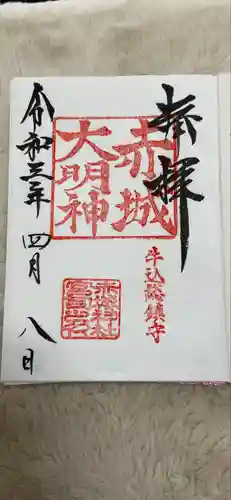 奉拝
赤城
大明神
牛込総鎮守
令和三年 四月 八日